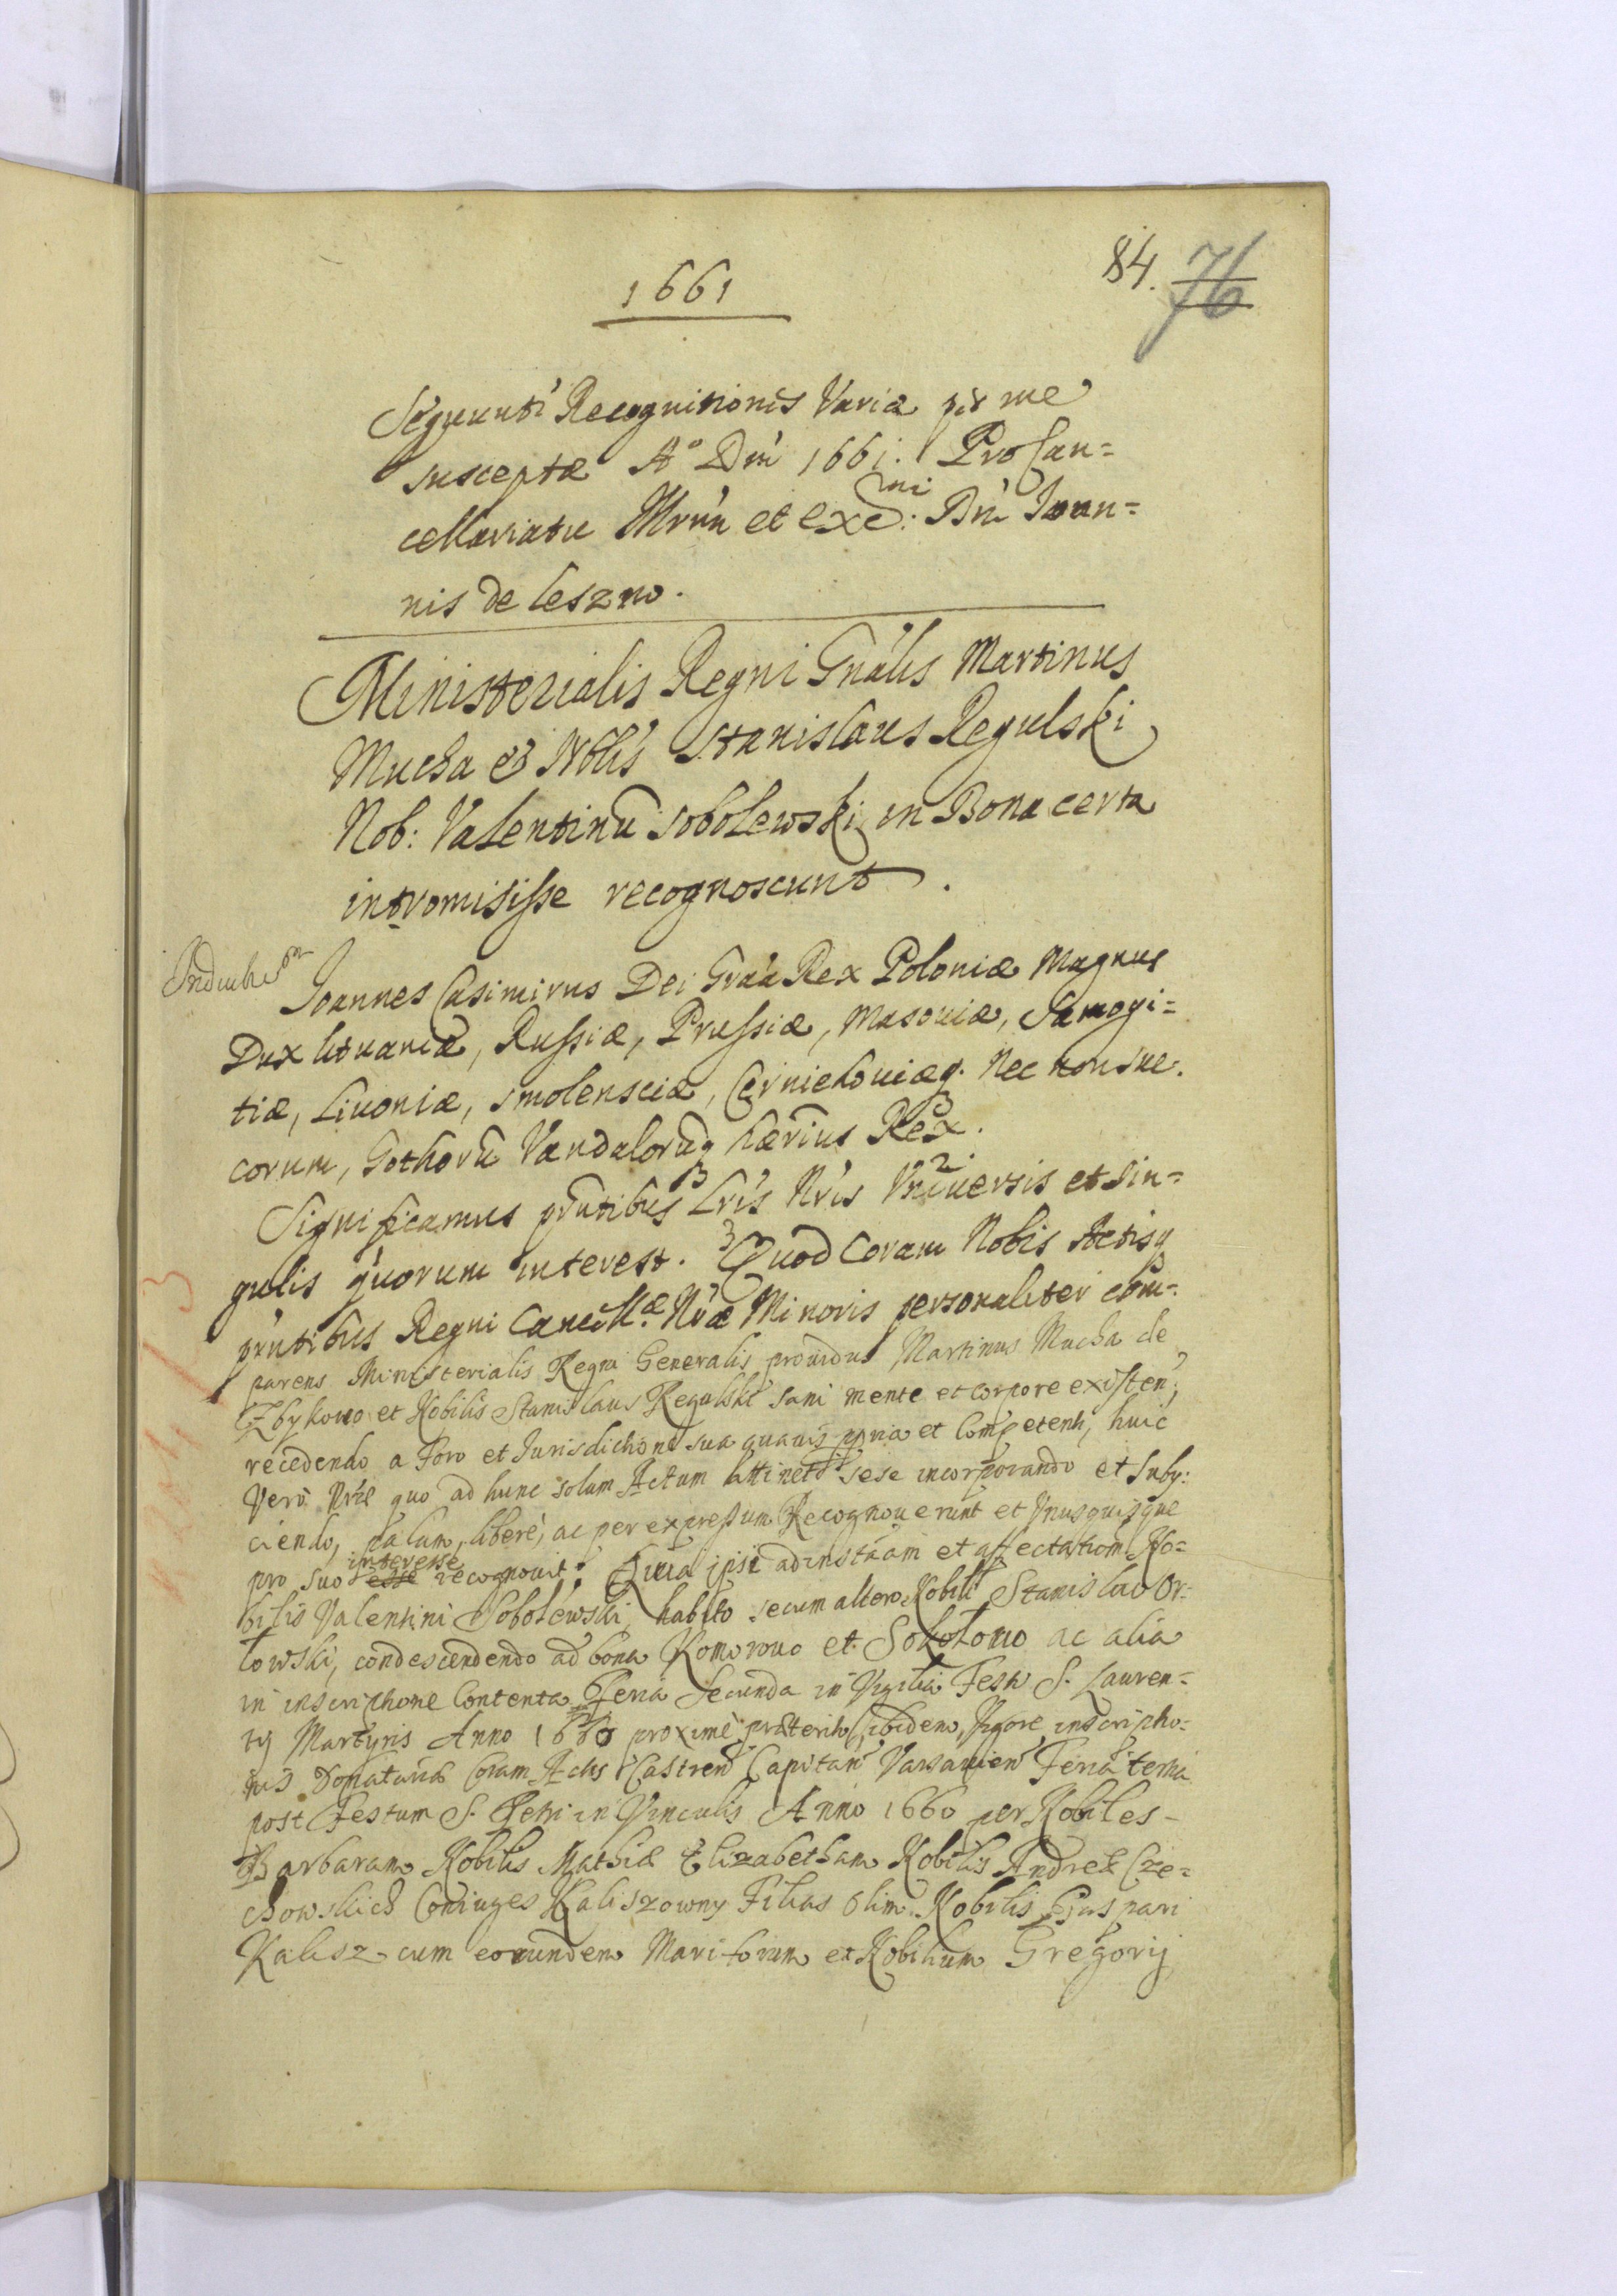 1661
84. 76
Sequunti Recognitiones Variæ per me
susceptæ Aº Dni 1661. Pro Can=
cellariatu Illrmi et Excmi: Dni Joan=
nis de Leszno.
Ministerialis Regni Gnalis Martinus
Mucha & Nblis Stanislaus Regulski
Nob: Valentinū Sobolewski in Bona certa
intromisisse recognoscunt.
Joannes Casimirus Dei Graa Rex Poloniæ Magnus
Dux Lituaniæ, Russiæ, Prussiæ, Masouiæ, Samogi=
tiæ, Liuoniæ, Smolensciæ, Czerniehouiæq. Nec non Sue.
corum, Gothorū Vandalorūq hærius Rex.
Significamus prntibus Lris Nris Vniuersis et Sin=
gulis quorum interest. Quod Coram Nobis Actisq
prntibus Regni Cancellæ Nræ Minoris personaliter com=
parens Ministerialis Regni Generalis prouidus Martinus Mucha de
Zbykowo et Nobilis Stanislaus Regulski sani mente et corpore existen,
recedendo a Foro et Jurisdictione sua quauis ppria et Competenti, huic
Verò Nræ quo ad hunc solum Actum attinet sese incorporando et Suby:
ciendo, palam, liberè, ac per expressum Recognouerunt et Vnusquisque
pro suo esse interesse recognouit. Quia ipsi ad instaām et affectationem No=
bilis Valentini Sobolewski, habito secum altero Nobili Stanislao Or=
łowski, condescendendo ad bona Komorowo et Sokołowo ac alia
in inscriptione Contenta Feria Secunda in Vigilia Festi S. Lauren=
tij Martyris Anno 1660 proximè præteriti, ibidem, Vigore inscriptio=
nis Donatoriæ Coram Actis Castren Capitan Varsauien Feria tertia
post Festum S. Petri in Vinculis Anno 1660 per Nobiles -
Barbaram Nobilis Mathiæ Elizabetham Nobilis Andreæ Cze=
chowskich Coniuges Kaliszowny Filias Olim Nobilis Gaspari
Kalisz cum eorundem Maritorum et Nobilium Gregorij